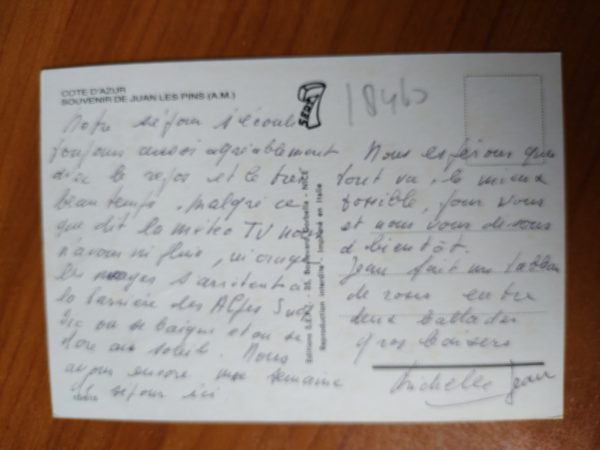 COTE D'AZUR
SOUVENIR DE JUAN LES PINS (A.M.)
SEPT
18460
Notre séjour s'écoule
toujours aussi agréablement
avec le repos et le très
beau temps, malgré ce
que dit la météo TV nous
n'avons ni pluie, ni orages
les nuages s'arrêtent à
la barrière des Alpes
ou se baigne et on se
dore au soleil. Nous
avons encore une semaine
de séjour ici.
Nous espérons que
tout va le mieux
possible, pour vous
et nous vous disons
à bientôt.
Jean fait un
de vous entre
deux ballades
Gros baisers
Michelle Jean
Reproduction interdite - Imprimé en Italie